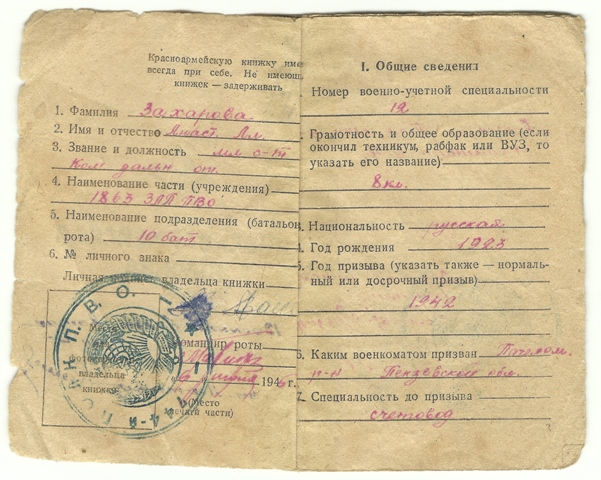 Красноармейскую книжку име
всегда при себе. Не имеющ
книжек — задерживать
1. Фамилия Захарова
2. Имя и отчество
3. Звание и должность мл с-т
Ком
4. Наименование части (учреждения)
1863 ЗАП ПВО
5. Наименование подразделения (батальон
рота) 10 бат
6. № личного знака
Личная владельца книжки
Командир роты
194 г.
(Место
печати части)
П. В. О.
владельца
книжки
I. Общие сведения
Номер военно-учетной специальности
12
Грамотность и общее образование (если
окончил техникум, рабфак или ВУЗ, то
указать его название)
8 кл.
Национальность русская
4. Год рождения 1923
5. Год призыва (указать также — нормаль-
ный или досрочный призыв)
1942
6. Каким военкоматом призван
р-н Пензенской обл.
7. Специальность до призыва
счетовод